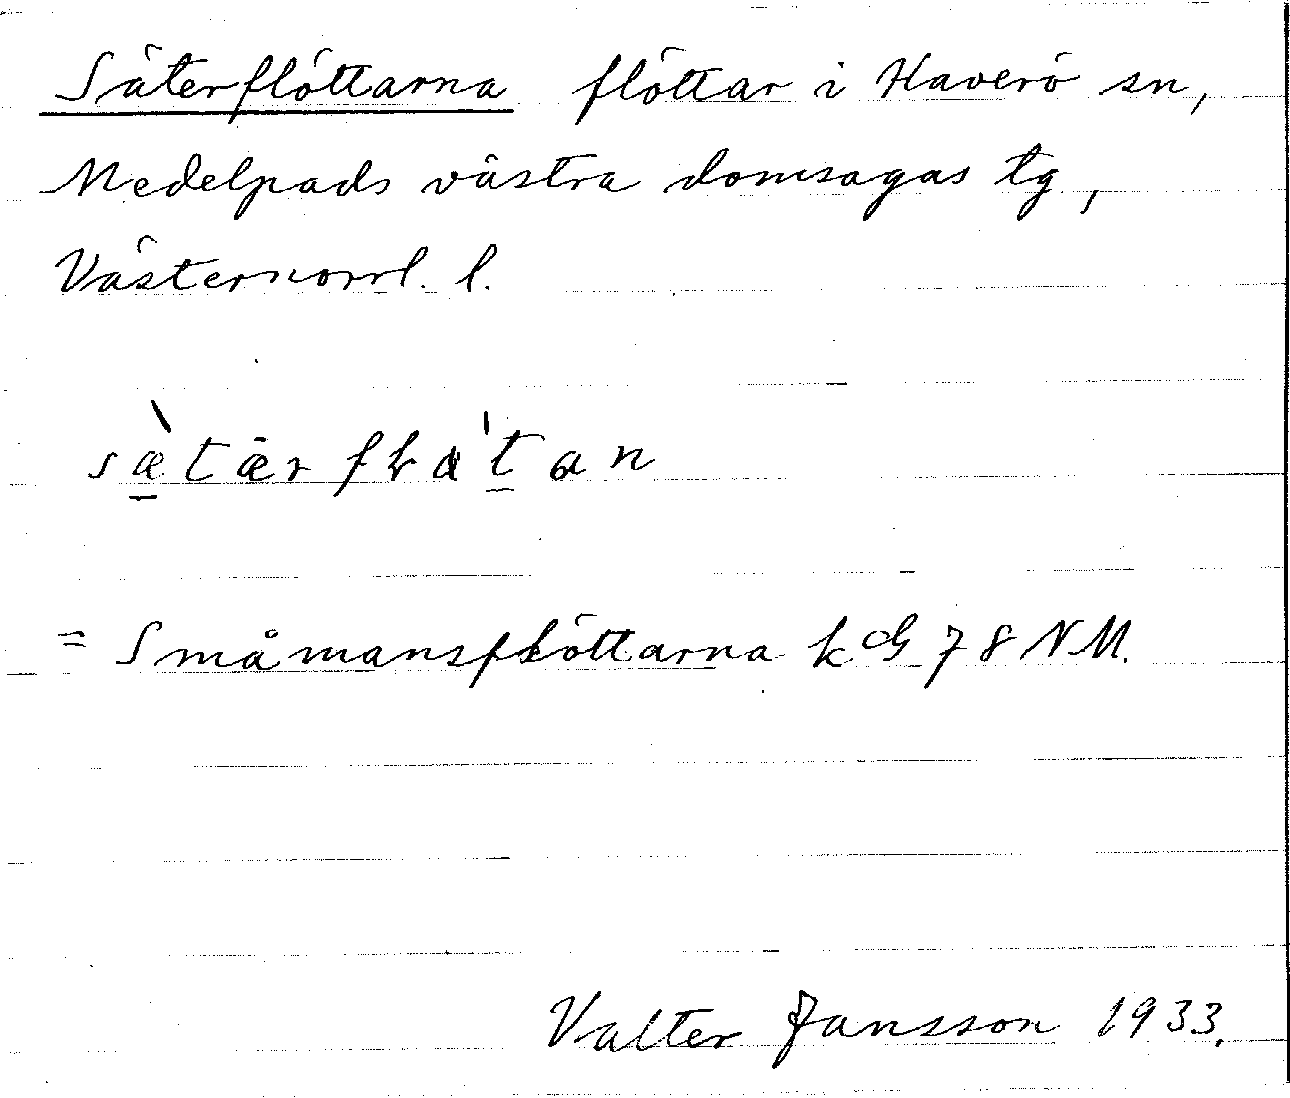 Säterflöttarna flöttar i Haverö sn,
Medelpads västra domsagas tg,
Västernorrl. l.
sæ̀tær flátan
= Småmansflöttarna k G 78 NM.
Valter Jansson 1933.